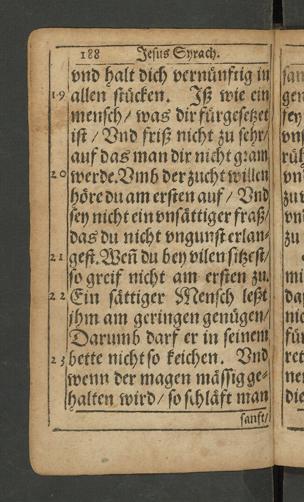 188 Jesus Syrach.
vnd halt dich vernünftig in
19 allen stücken. Iß wie ein
mensch / was dir fürgesetzet
ist / Vnd friß nicht zu sehr /
auf das man dir nicht gram
20 werde. Vmb der zucht willen
höre du am ersten auf / Vnd
sey nicht ein vnsättiger fraß /
das du nicht vngunst erlan-
21 gest. Weñ du bey vilen sitzest /
so greif nicht am ersten zu.
22 Ein sättiger Mensch leßt
jhm am geringen genügen /
Darumb darf er in seinem
23 bette nicht so keichen. Vnd
wenn der magen mässig ge-
halten wird / so schläft man
sanft /